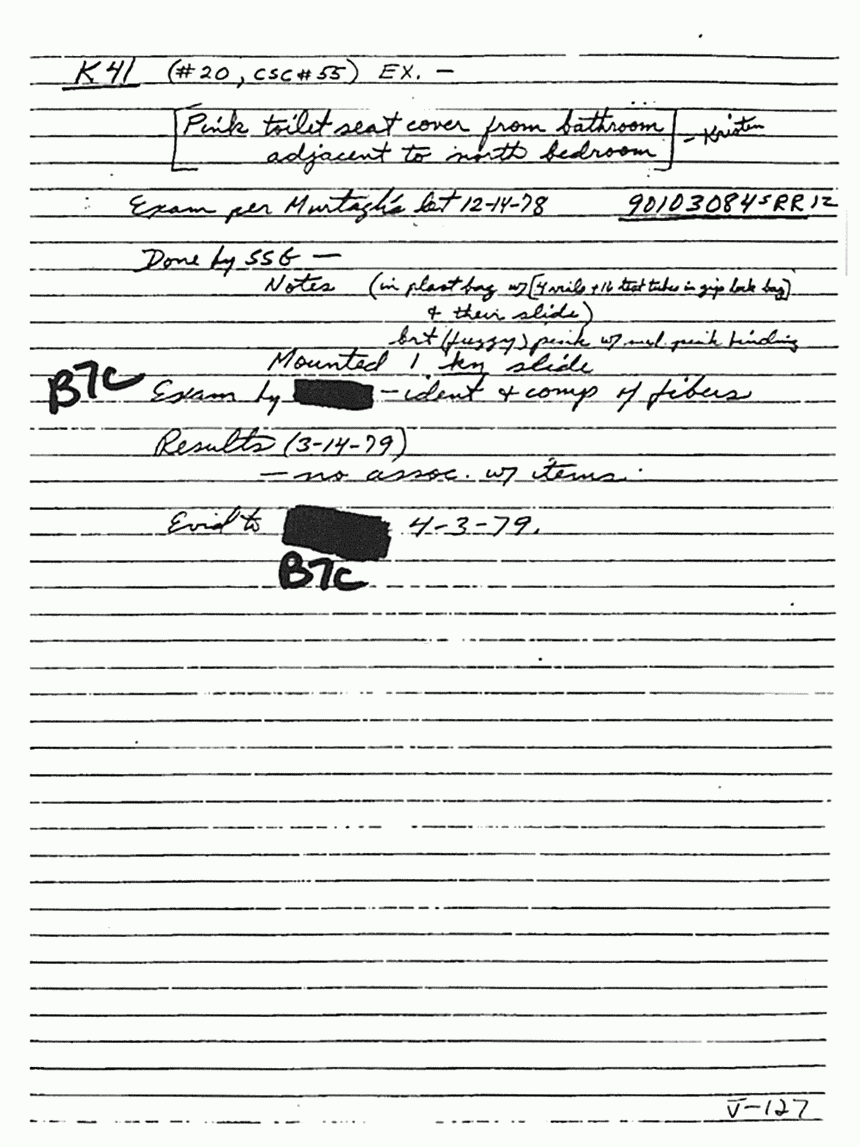 K41 (#20, CSC#55) EX. —
[Pink toilet seat cover from bathroom
adjacent to north bedroom] - Kristen
Exam per Murtagh's let 12-14-78 90103084SRR12
Done by SSG —
Notes (in plast bag w/[4 vials + 16 test tubes in zip lock bag]
& their slide)
brt (fuzzy) pink w/ med. pink binding
Mounted 1 kn slide
B7C Exam by — ident & comp of fibers
Results (3-14-79)
— no assoc. w/ items.
Evid to 4-3-79.
B7C
V-127